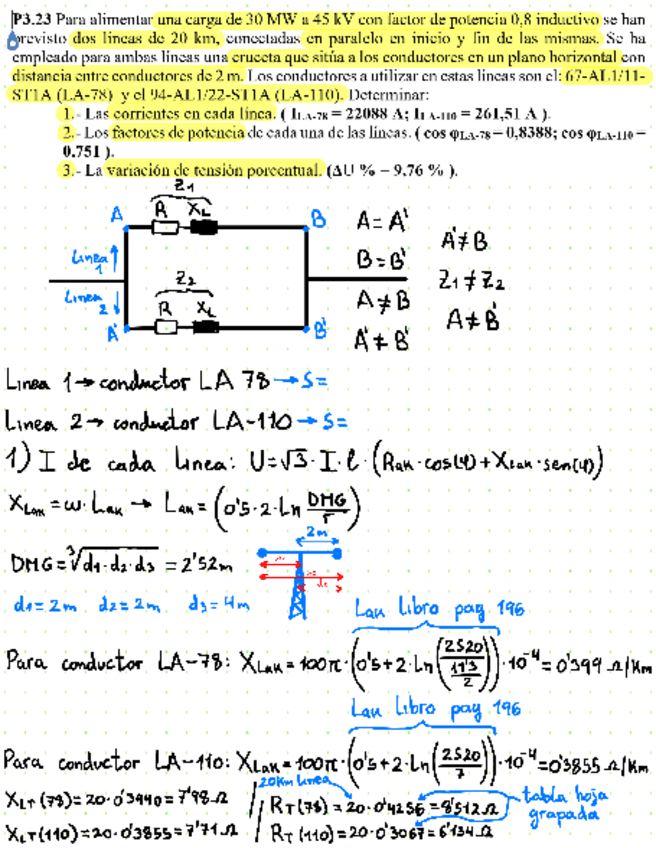 P3.23 Para alimentar una carga de 30 MW a 45 kV con factor de potencia 0,8 inductivo se han
previsto dos líneas de 20 km, conectadas en paralelo en inicio y fin de las mismas. Se ha
empleado para ambas líneas una cruceta que sitúa a los conductores en un plano horizontal con
distancia entre conductores de 2 m. Los conductores a utilizar en estas líneas son el: 67-AL1/11-
ST1A (LA-78) y el 94-AL1/22-ST1A (LA-110). Determinar:
1.- Las corrientes en cada línea. ( I LA-78 = 22088 A; I LA-110 = 261,51 A ).
2.- Los factores de potencia de cada una de las líneas. ( cos φLA-78 = 0,8388; cos φLA-110 =
0,751 ).
3.- La variación de tensión porcentual. (ΔU % = 9,76 % ).
Z1
A R XL B
Linea 1
Z2
Linea 2
R XL
A' B'
A = A'
B = B'
A ≠ B
A' ≠ B'
A' ≠ B
Z1 ≠ Z2
A ≠ B'
Linea 1 → conductor LA 78 → S=
Linea 2 → conductor LA-110 → S=
1) I de cada linea: U = √3 · I · l · (Rak · cos(φ) + Xlak · sen(φ))
XLak = ω · Lak → Lak = (0'5 · 2 · Ln DMG/r)
DMG = ∛d1·d2·d3 = 2'52m
2m
d1 = 2m d2 = 2m d3 = 4m
Lak Libro pag 196
Para conductor LA-78: XLak = 100π · (0'5 + 2 · Ln (2520/(11'3/2))) · 10^-4 = 0'399 Ω/Km
Lak Libro pag 196
Para conductor LA-110: XLak = 100π · (0'5 + 2 · Ln (2520/7)) · 10^-4 = 0'3855 Ω/Km
20Km linea
XLT (78) = 20 · 0'3990 = 7'98 Ω / RT (78) = 20 · 0'4256 = 8'512 Ω
tabla hoja grapada
XLT (110) = 20 · 0'3855 = 7'71 Ω / RT (110) = 20 · 0'3067 = 6'134 Ω